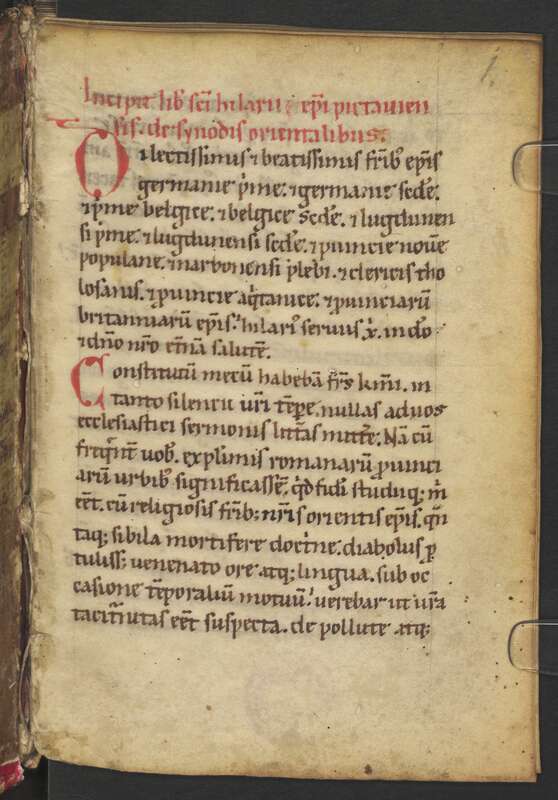 1.
Incipit lib̄ sc̄i hilarii ep̄i pictauien
sis. de synodis orientalibus.
Dilectissimis ⁊ beatissimis fr̄ib' ep̄is
germanie p̄me. ⁊ germanie sc̄de.
⁊ p̄me belgice. ⁊ belgice sc̄de. ⁊ lugdunen
si p̄me. ⁊ lugdunensi sc̄de. ⁊ p̱uincie noue
populane. ⁊ narbonensi plebi. ⁊ clericis tho
losanis. ⁊ p̱uincie aq̇tanice. ⁊ p̱uinciarū
britanniarū ep̄is. hilari' seruus x̄. in dō
⁊ dn̄o nr̄o et̄nā salutē.
Constitutū mecū habebā fr̄s k̄mi. in
tanto silentii ur̄i tēp̱e. nullas ad uos
ecclesiastici sermonis litt̄as mitte̅. Nā cū
freq̄nt̄ uob̄. ex plimis romanarū p̱uinci
arū urbib' significassē. q̇d fidi studiiq; m̄
eēt. cū religiosis fr̄ib; nr̄is orientis ep̄is. q̄n
taq; sibila mortifere doct̄ne. diabolus p̱
tuliss; uenenato ore atq; lingua. sub oc
casione tēporaliū motuū. uerebar ut ur̄a
tacit̄nitas eēt suspecta. de pollute atq;